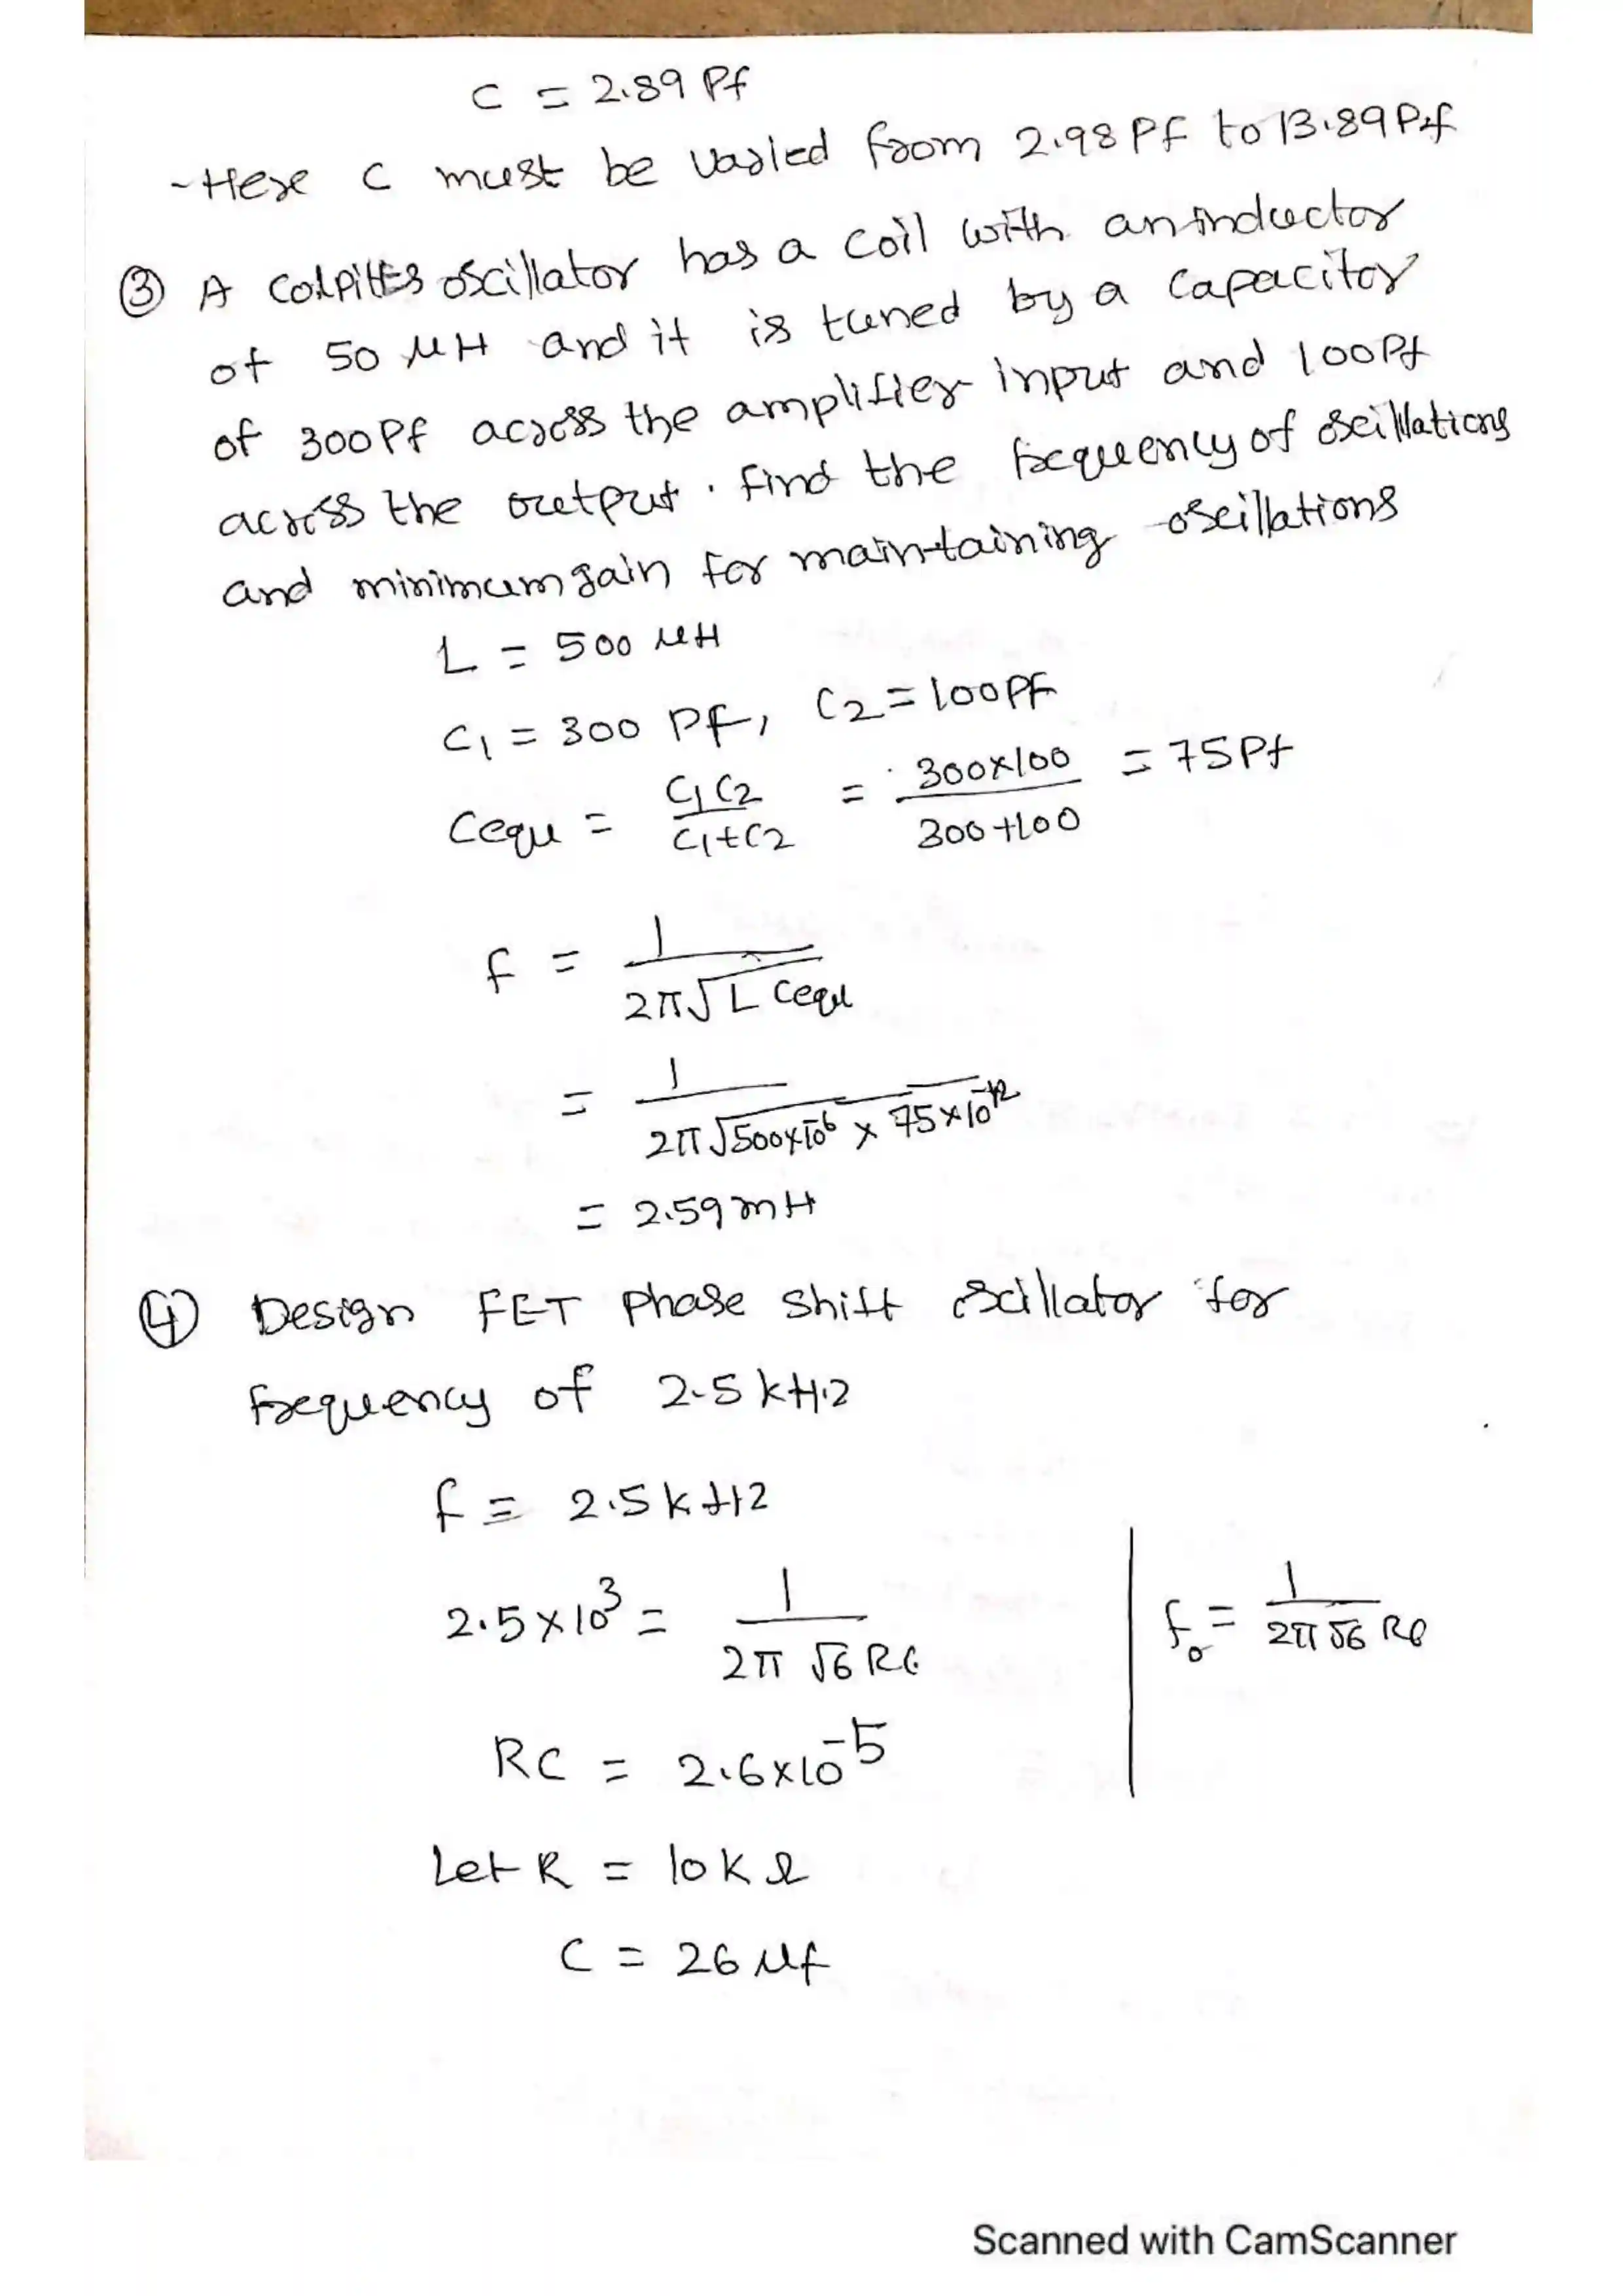 C = 2.89 Pf
- Here C must be varied from 2.98 PF to 13.89 Pf
③ A Colpitts oscillator has a coil with an inductor
of 50 μH and it is tuned by a capacitor
of 300 Pf across the amplifier input and 100 Pf
across the output. find the frequency of oscillations
and minimum gain for maintaining oscillations
L = 500 μH
C1 = 300 Pf, C2 = 100 PF
Cequ = C1 C2 / C1+C2 = 300×100 / 300+100 = 75 Pf
f = 1 / 2π√L Cequ
= 1 / 2π√500×10^-6 × 75×10^-12
= 2.59 mH
④ Design FET Phase shift oscillator for
frequency of 2.5 kHz
f = 2.5 kHz
2.5×10^3 = 1 / 2π √6 RC
f0 = 1 / 2π √6 RC
RC = 2.6×10^-5
Let R = 10 k Ω
C = 26 μf
Scanned with CamScanner